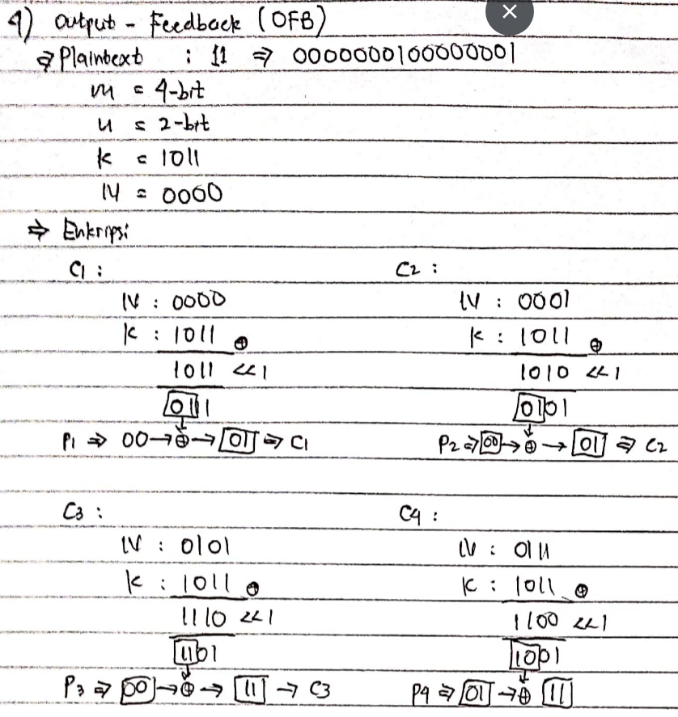 4) Output - Feedback (OFB)
⇒ Plaintext : 11 ⇒ 0000000100000001
m = 4-bit
u = 2-bit
k = 1011
IV = 0000
⇒ Enkripsi
C1 :
IV : 0000
k : 1011 ⊕
1011 <<1
0111
P1 ⇒ 00 → ⊕ → 01 ⇒ C1
C2 :
IV : 0001
k : 1011 ⊕
1010 <<1
0101
P2 ⇒ 00 → ⊕ → 01 ⇒ C2
C3 :
IV : 0101
k : 1011 ⊕
1110 <<1
1101
P3 ⇒ 00 → ⊕ → 11 → C3
C4 :
IV : 0111
k : 1011 ⊕
1100 <<1
1001
P4 ⇒ 01 → ⊕ 11